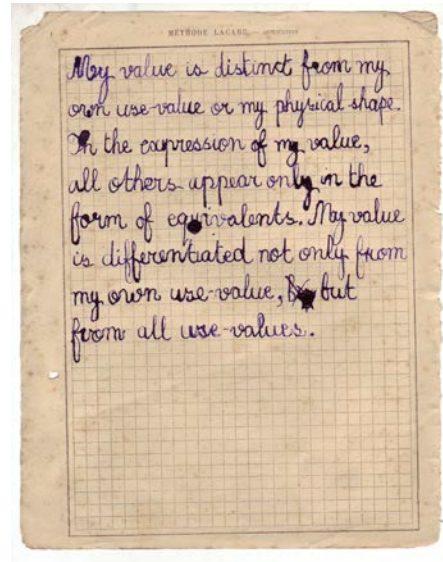 MÉTHODE LACABE.
My value is distinct from my
own use-value or my physical shape.
In the expression of my value,
all others appear only in the
form of equivalents. My value
is differentiated not only from
my own use-value, but
from all use-values.